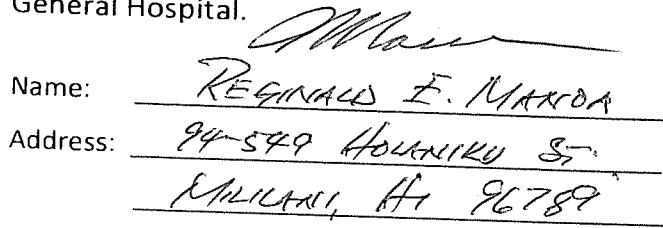 General Hospital.
Name: REGINALD E. MANOA
Address: 94-549 HOLANIKU ST.
MILILANI, HI 96789